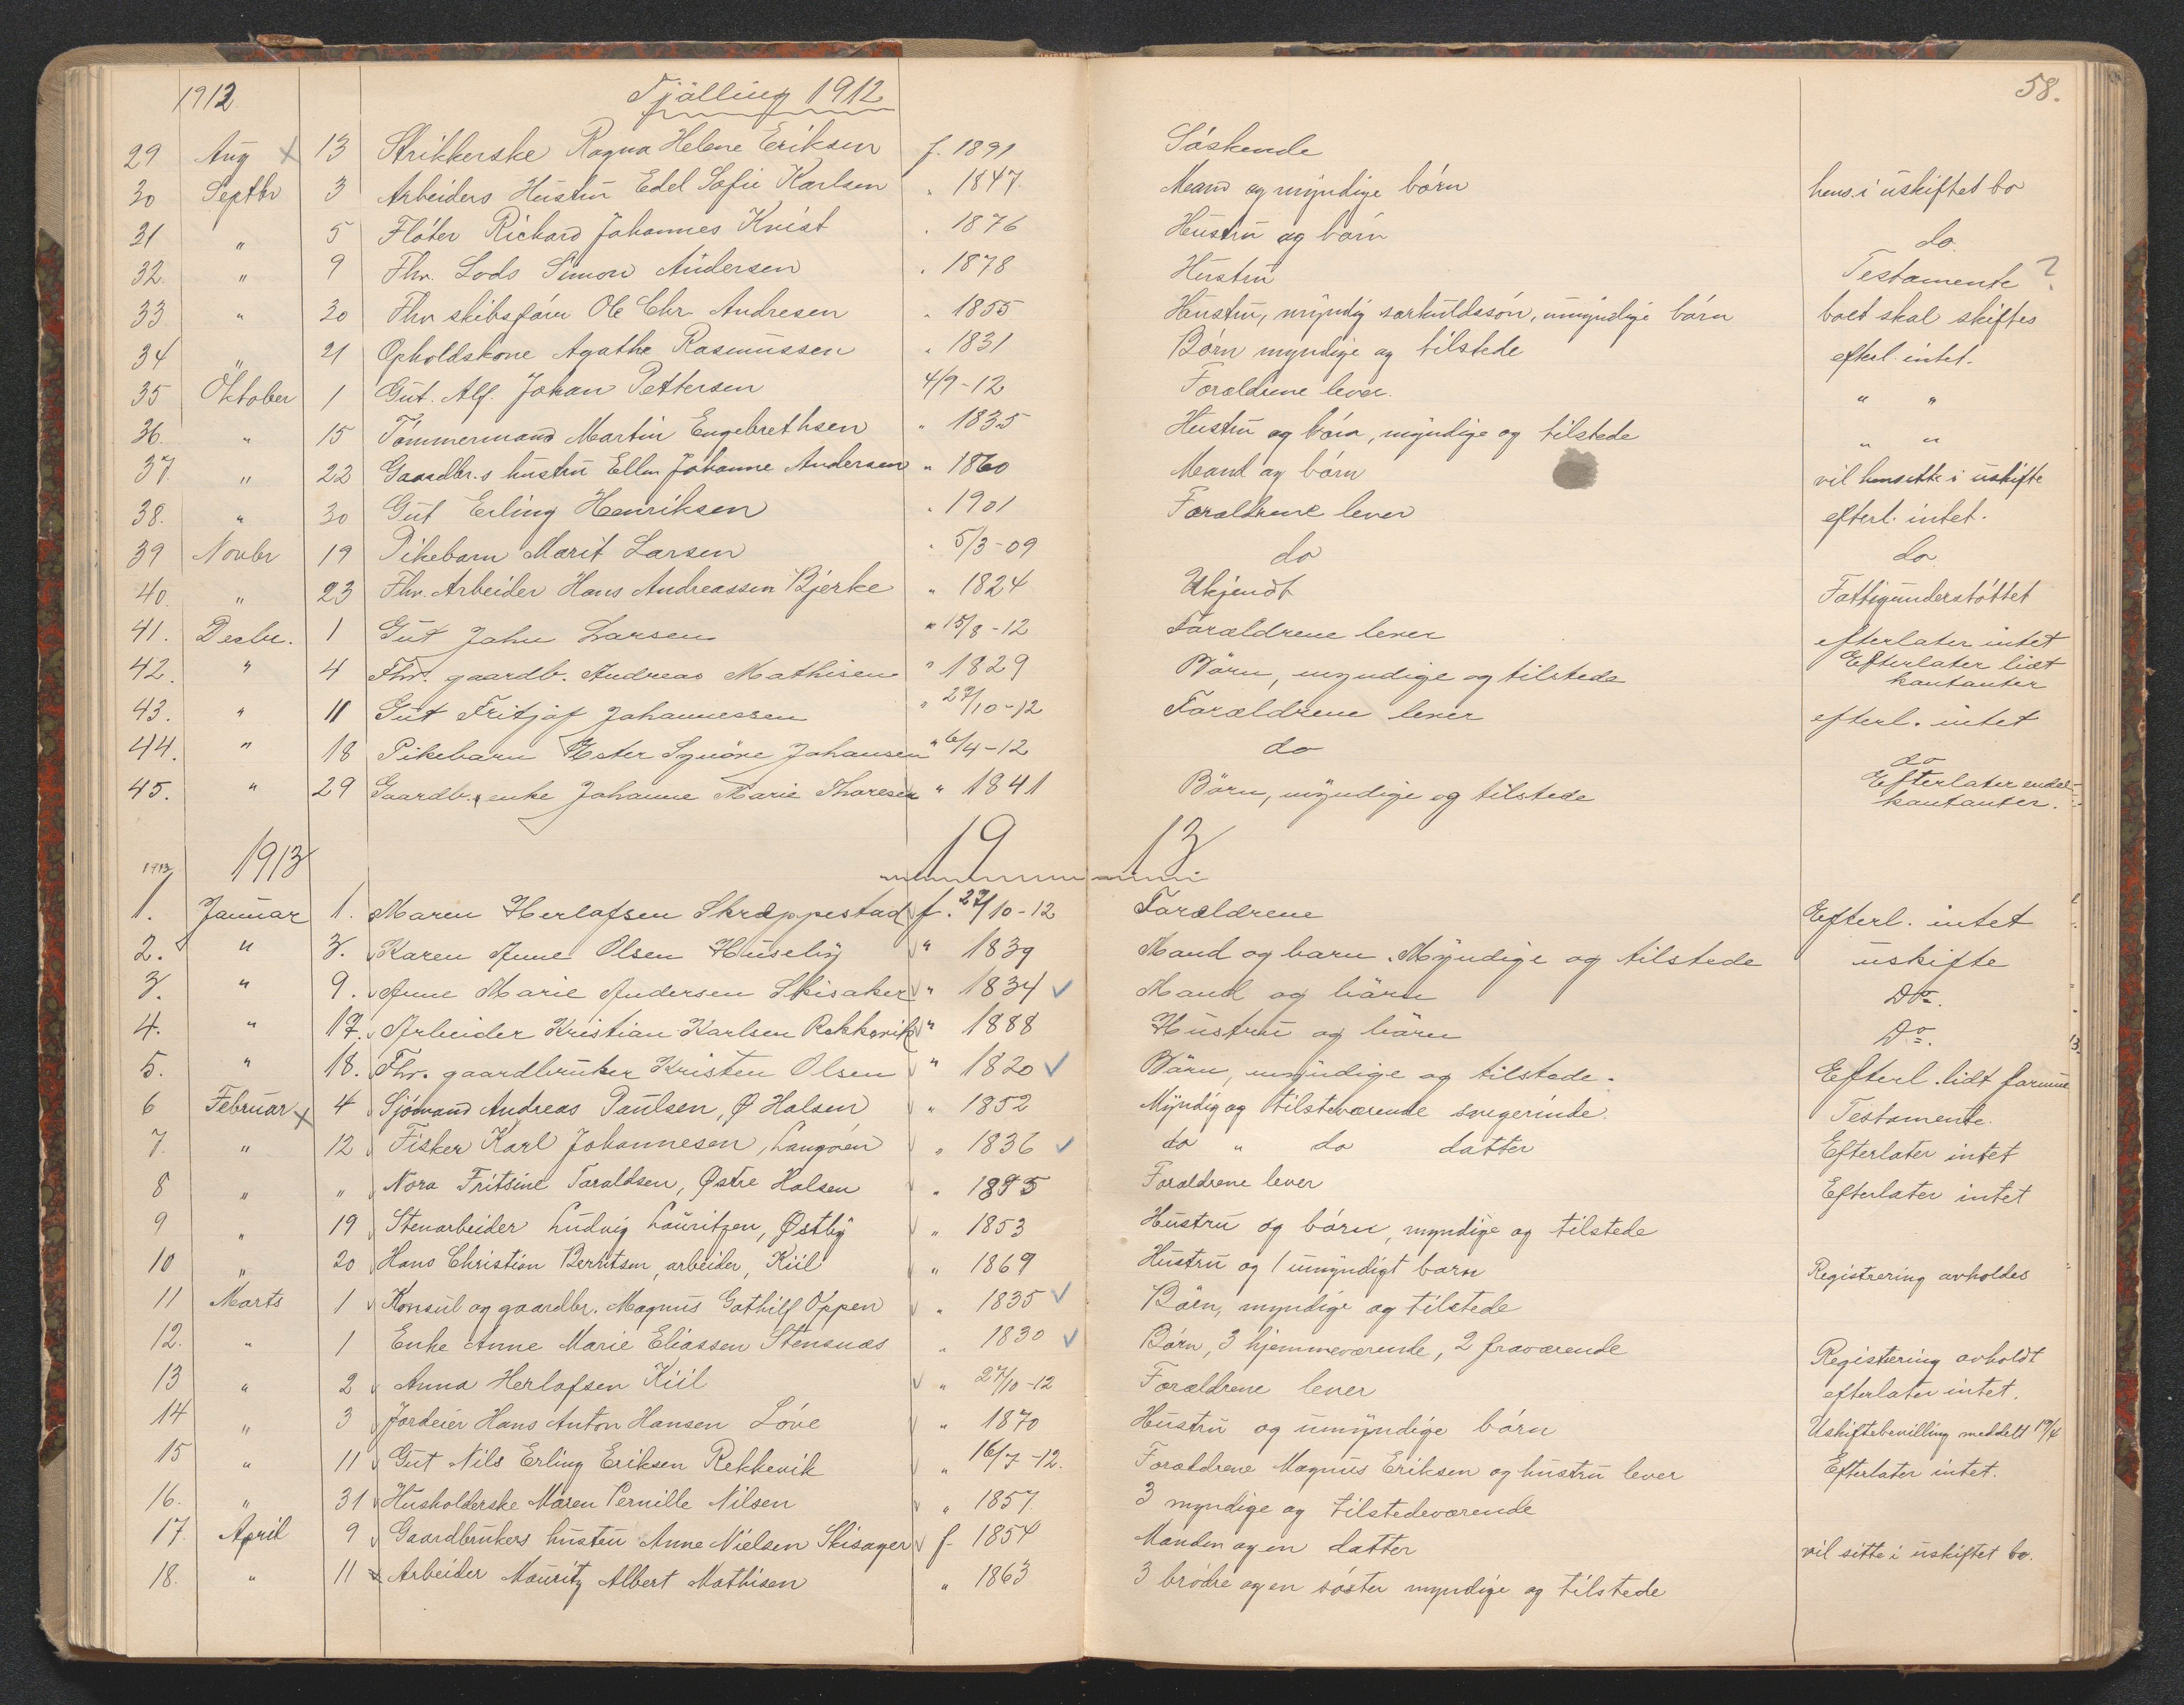 58.
1912 Tjölling 1912
29 Aug x 13 Strikkerske Ragna Helene Eriksen f. 1891 Søskende
30 Septbr 3 Arbeiders Hustru Edel Sofie Karlsen " 1847. Mand og myndige børn hens. i uskiftet bo
31 " 5 Fløter Richard Johannes Kvist " 1876 Hustru og børn do.
32. " 9 Fhv. Lods Simon Andersen " 1878 Hustru Testamente ?
33 " 20 Fhv skibsfører Ole Chr. Andresen " 1855 Hustru, myndig særkuldssøn, umyndige børn boet skal skiftes
34 " 21 Opholdskone Agathe Rasmussen " 1831 Børn myndige og tilstede efterl. intet.
35 Oktober 1 Gut. Alf. Johan Pettersen 4/9-12 Forældrene lever. " "
36. " 15 Tømmermand Martin Engebrethsen " 1835 Hustru og børn, myndige og tilstede " "
37. " 22 Gaardbr.s hustru Ellen Johanne Andersen " 1860 Mand og børn vil hensitte i uskifte
38. " 30 Gut Erling Henriksen " 1901 Forældrene lever efterl. intet.
39 Novbr 19 Pikebarn Marit Larsen " 5/3-09 do do
40. " 23 Fhv. Arbeider Hans Andreassen Bjerke " 1824 Ukjendt Fattigunderstøttet
41. Decbr. 1 Gut John Larsen " 15/8-12 Forældrene lever efterlater intet
42. " 4 Fhv. gaardb. Andreas Mathisen " 1829 Börn, myndige og tilstede Efterlater lidt kontanter
43. " 11 Gut Fritjof Johannessen " 27/10-12 Forældrene lever efterl. intet
44. " 18 Pikebarn Ester Synöve Johansen " 6/4-12 do do
45. " 29 Gaardbr. enke Johanne Marie Thoresen " 1841 Börn, myndige og tilstede Efterlater endel kontanter.
1913 19 13
1913
1. Januar 1. Maren Herlofsen Skræppestad f. 27/10-12 Forældrene Efterl. intet
2. " 3. Karen Anne Olsen Huseby " 1839 Mand og barn. Myndige og tilstede uskifte
3. " 9. Anne Marie Andersen Skisaker " 1834 Mand og börn Do.
4. " 17. Arbeider Kristian Karlsen Rekkevik " 1888 Hustru og börn Do.
5. " 18. Fhv. gaardbruker Kristen Olsen " 1820 Börn, myndige og tilstede. Efterl. lidt formue
6 Februar x 4 Sjömand Andreas Paulsen, Ø Halsen " 1852 Myndig og tilstedeværende svigerinde. Testamente.
7. " 12 Fisker Karl Johannesen, Langøen " 1836 do " do datter Efterlater intet
8 " " Nora Fritsine Taraldsen, Østre Halsen " 1895 Forældrene lever Efterlater intet
9 " 19 Stenarbeider Ludvig Lauritzen, Østby " 1853 Hustru og børn, myndige og tilstede
10 " 20 Hans Christian Berntsen, arbeider, Kiil " 1869 Hustru og 1 umyndigt barn Registrering avholdes
11 Marts 1 Konsul og gaardbr. Magnus Gothilf Oppen " 1835 Børn, myndige og tilstede
12. " 1 Enke Anne Marie Eliassen Stensnæs " 1830 Børn, 3 hjemmeværende, 2 fraværende Registrering avholdt
13 " 2 Anna Herlofsen Kiil " 27/10-12 Forældrene lever efterlater intet.
14 " 3 Jordeier Hans Anton Hansen Løve " 1870 Hustru og umyndige børn Uskiftebevilling meddelt 19/4
15 " 11 Gut Nils Erling Eriksen Rekkevik " 16/7-12. Forældrene Magnus Eriksen og hustru lever Efterlater intet.
16. " 31 Husholderske Maren Pernille Nilsen " 1857 3 myndige og tilstedeværende
17. April 9 Gaardbrukers hustru Anne Nielsen Skisager f. 1854 Manden og en datter vil sitte i uskiftet bo.
18. " 11 Arbeider Mauritz Albert Mathisen " 1863 3 brødre og en søster myndige og tilstede